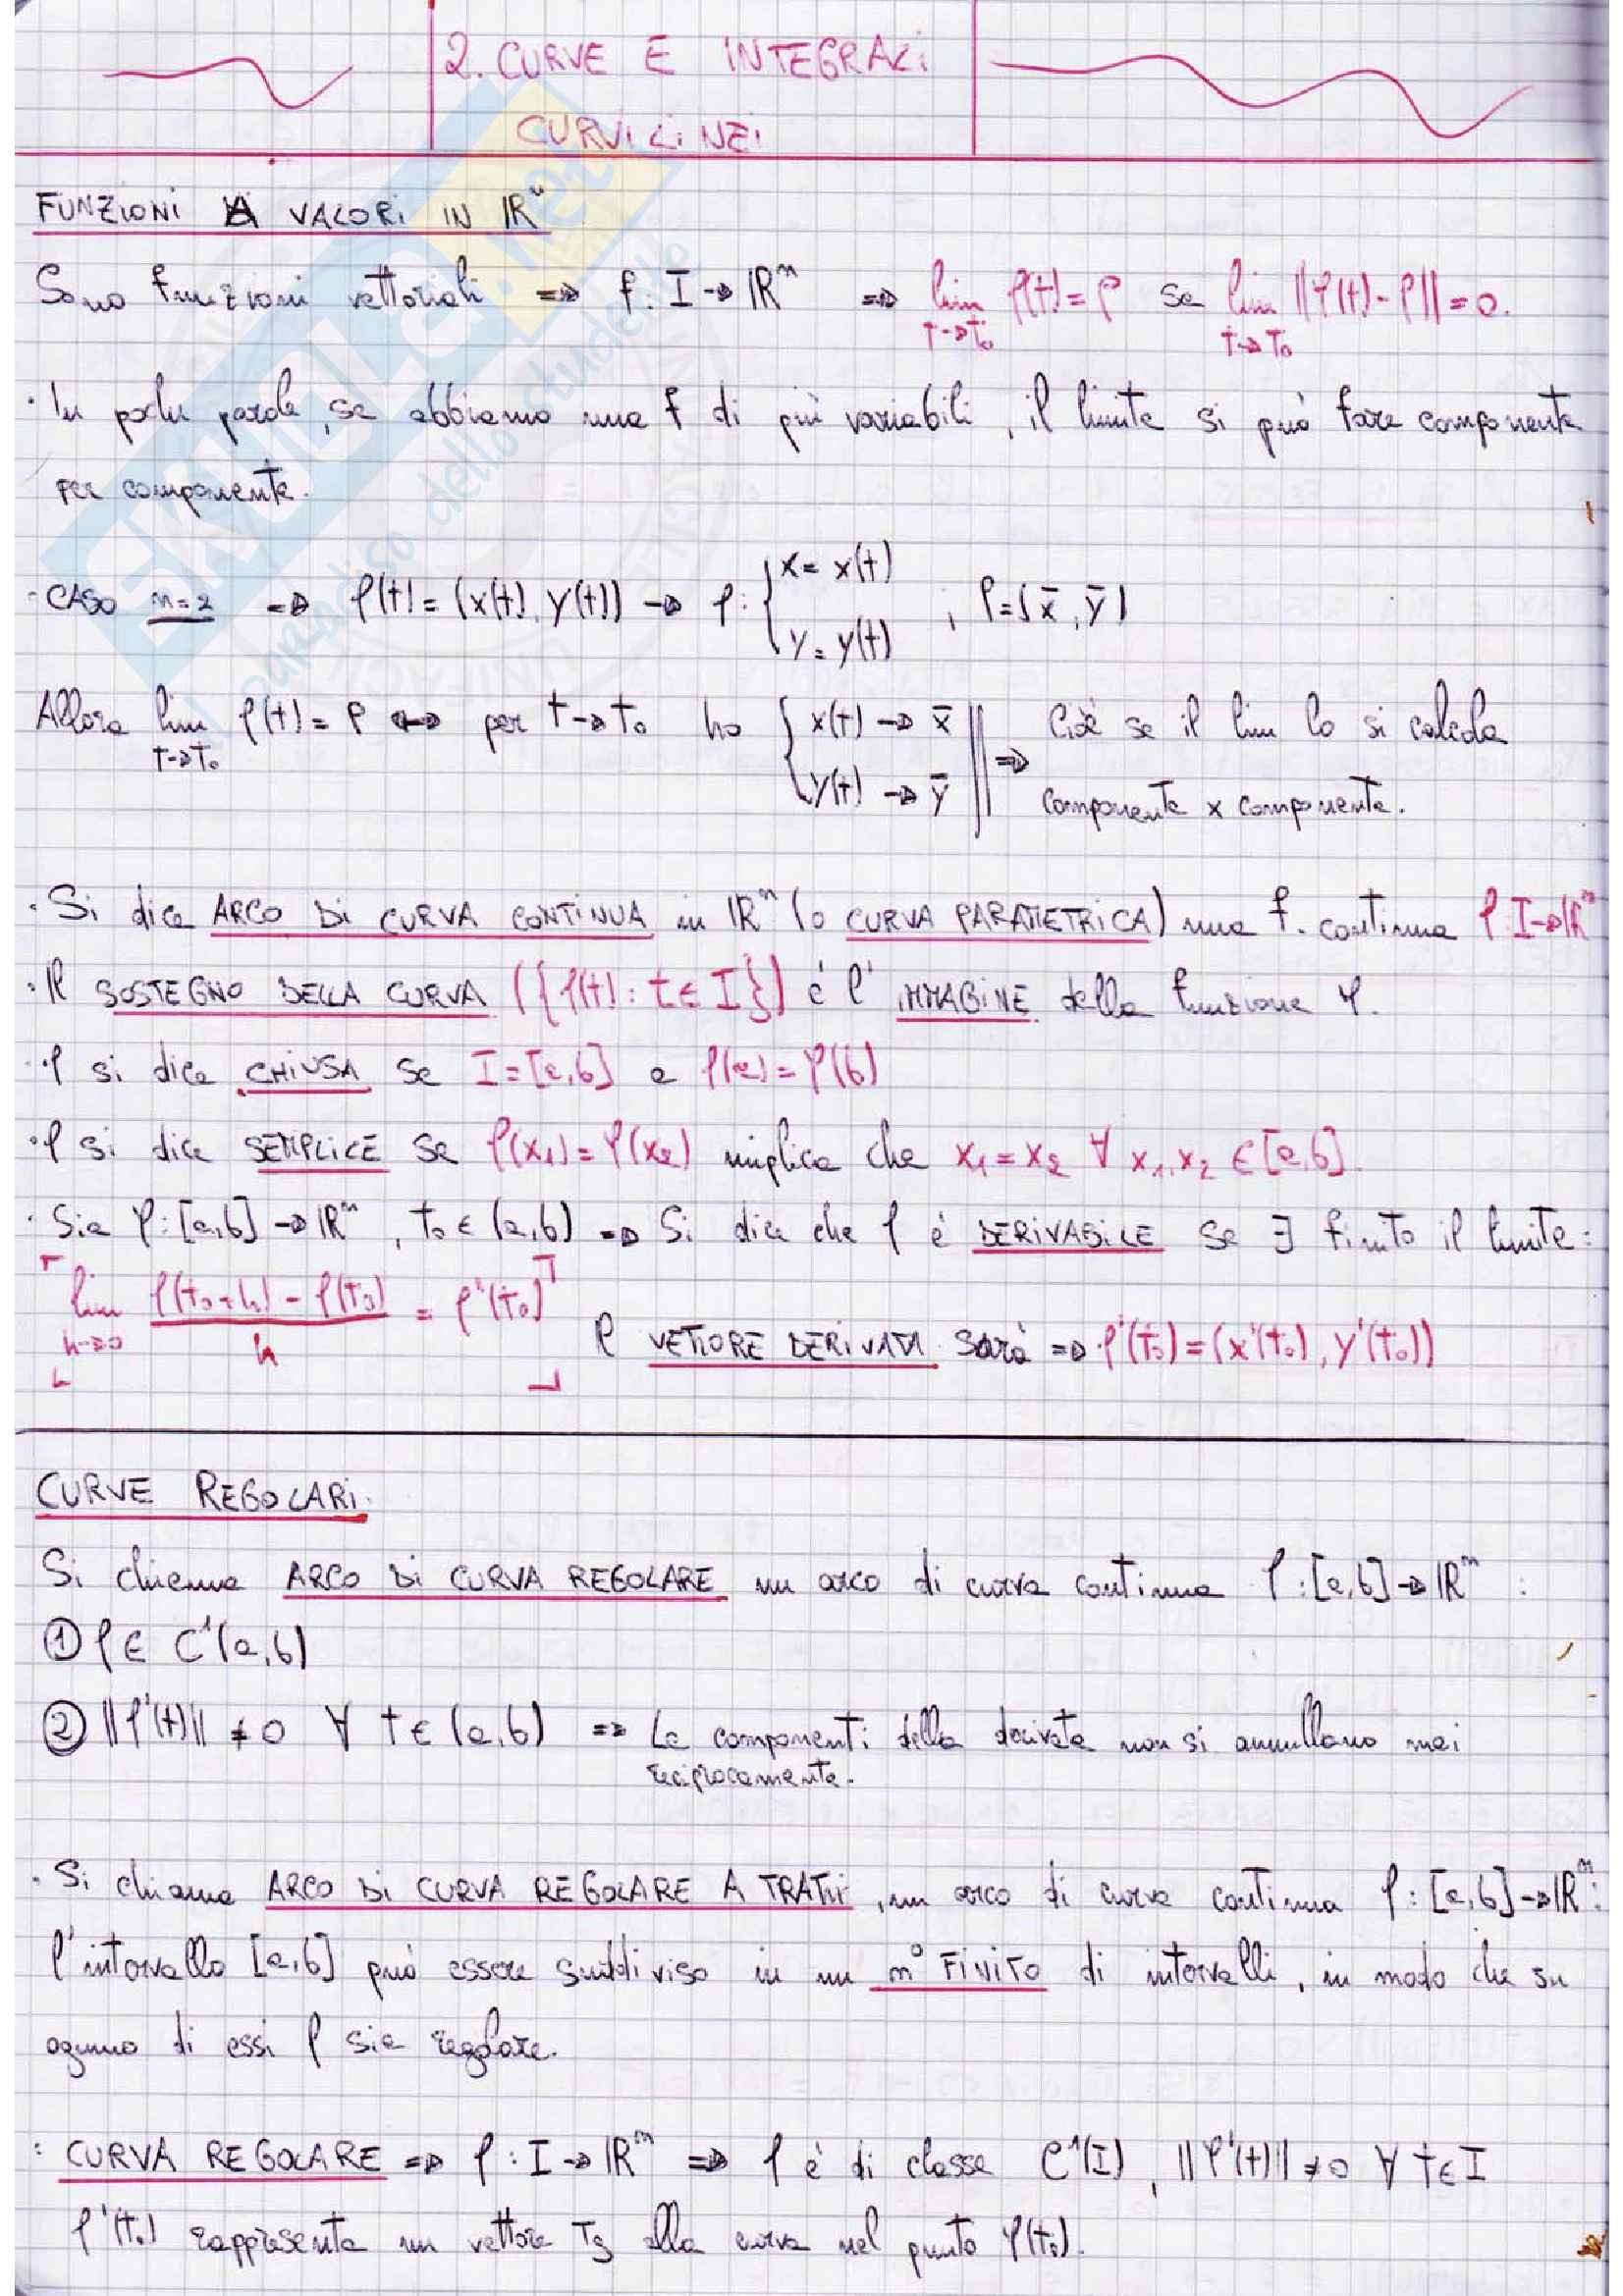 2. CURVE E INTEGRALI
CURVILINEI
FUNZIONI A VALORI IN ℝⁿ
Sono funzioni vettoriali => f: I → ℝⁿ => lim t→t₀ φ(t) = P se lim t→t₀ ||φ(t) - P|| = 0.
· In poche parole, se abbiamo una f di più variabili, il limite si può fare componente
per componente.
· CASO n=2 => φ(t) = (x(t), y(t)) → φ: { x = x(t) y = y(t) , P = (x̄, ȳ)
Allora lim t→t₀ φ(t) = P ↔ per t→t₀ ho { x(t) → x̄ y(t) → ȳ || => Cioè se il lim lo si calcola
componente x componente.
· Si dice ARCO DI CURVA CONTINUA in ℝⁿ (o CURVA PARAMETRICA) una f. continua φ: I→ℝⁿ
· Il SOSTEGNO DELLA CURVA ({φ(t): t∈I}) é l'IMMAGINE della funzione φ.
· φ si dice CHIUSA se I = [a,b] e φ(a) = φ(b)
· φ si dice SEMPLICE se φ(x₁) = φ(x₂) implica che x₁ = x₂ ∀ x₁,x₂ ∈ [a,b].
· Sia φ: [a,b] → ℝⁿ, t₀ ∈ (a,b) => Si dice che φ è DERIVABILE se ∃ finito il limite:
lim h→0 (φ(t₀+h) - φ(t₀))/h = φ'(t₀)
Il VETTORE DERIVATA sarà => φ'(t₀) = (x'(t₀), y'(t₀))
CURVE REGOLARI.
Si chiama ARCO DI CURVA REGOLARE un arco di curva continua φ: [a,b] → ℝⁿ :
① φ ∈ C¹(a,b)
② ||φ'(t)|| ≠ 0 ∀ t ∈ (a,b) => Le componenti della derivata non si annullano mai
reciprocamente.
· Si chiama ARCO DI CURVA REGOLARE A TRATTI, un arco di curva continua φ: [a,b] → ℝⁿ:
l'intervallo [a,b] può essere suddiviso in un n° FINITO di intervalli, in modo che su
ognuno di essi φ sia regolare.
: CURVA REGOLARE => φ: I → ℝⁿ => φ è di classe C¹(I), ||φ'(t)|| ≠ 0 ∀ t ∈ I
φ'(t₀) rappresenta un vettore Tg alla curva nel punto φ(t₀).
SKUOLA.net
il paradiso dello studente